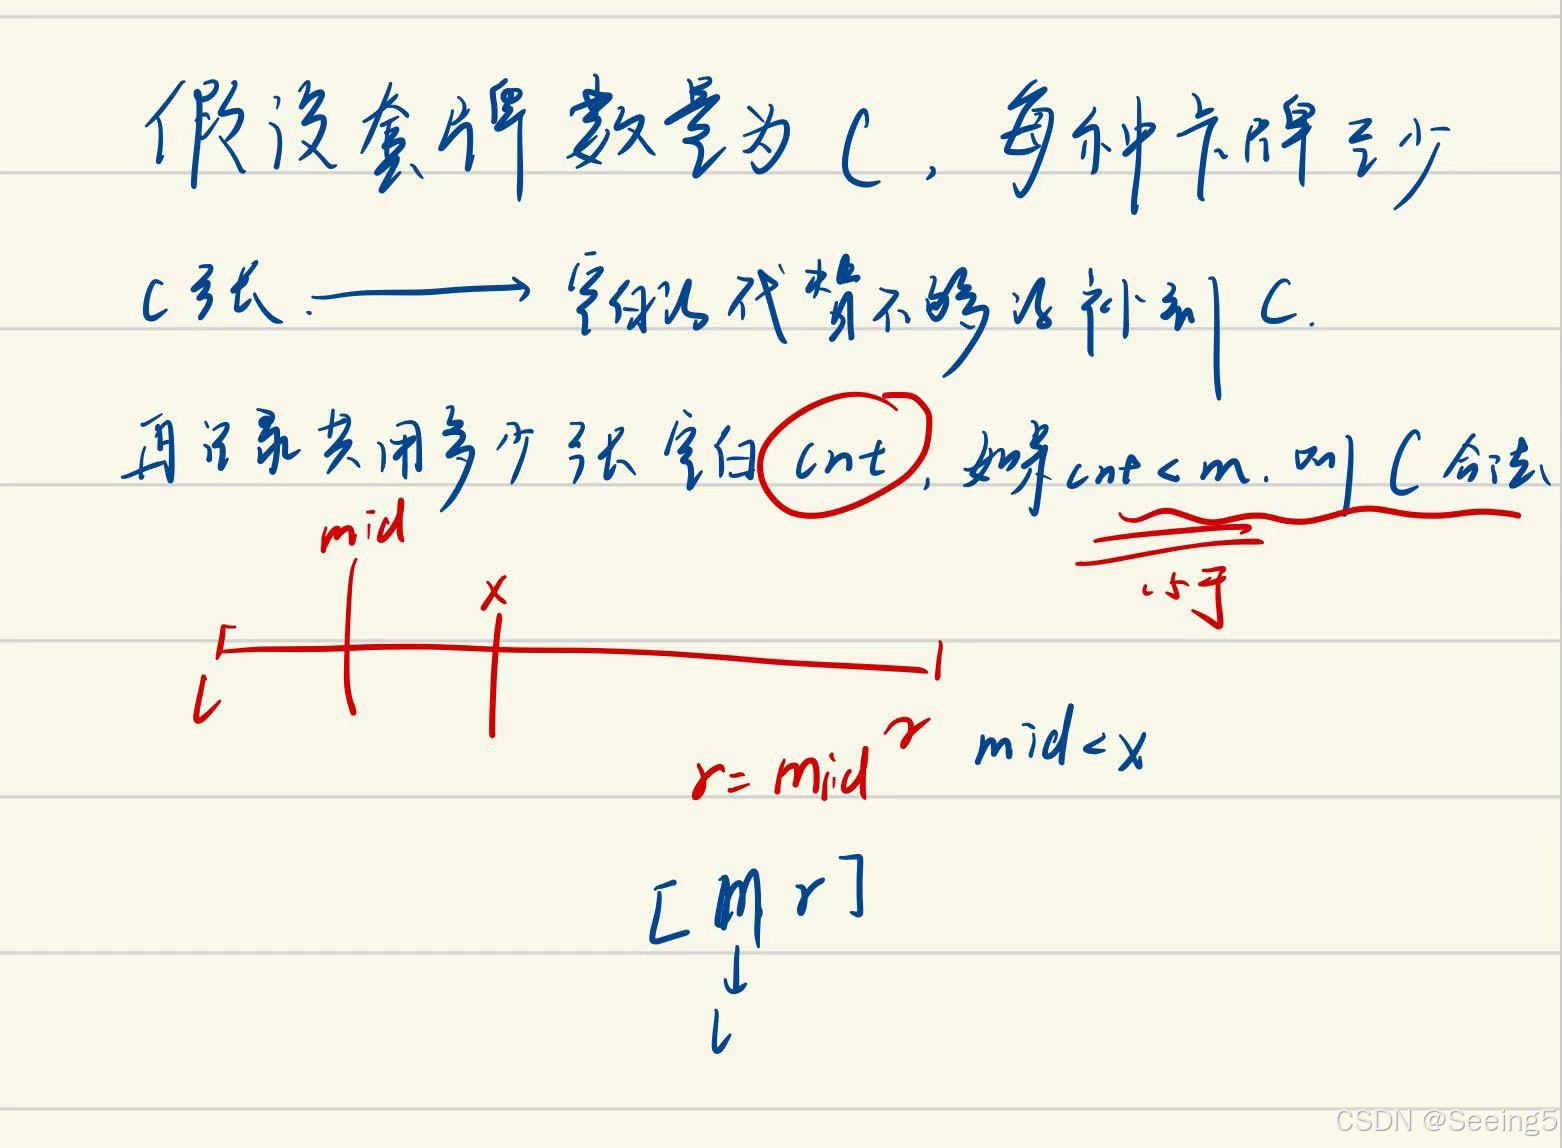 假设套牌数量为 C,每种卡牌至少
C张. → 空白的代替不够的补到 C.
再记录共用多少张空白 cnt,如果cnt<m.则C合法
mid
x
小于
[
l
r
r=mid
mid<x
[m r]
↓
l
CSDN @Seeing5